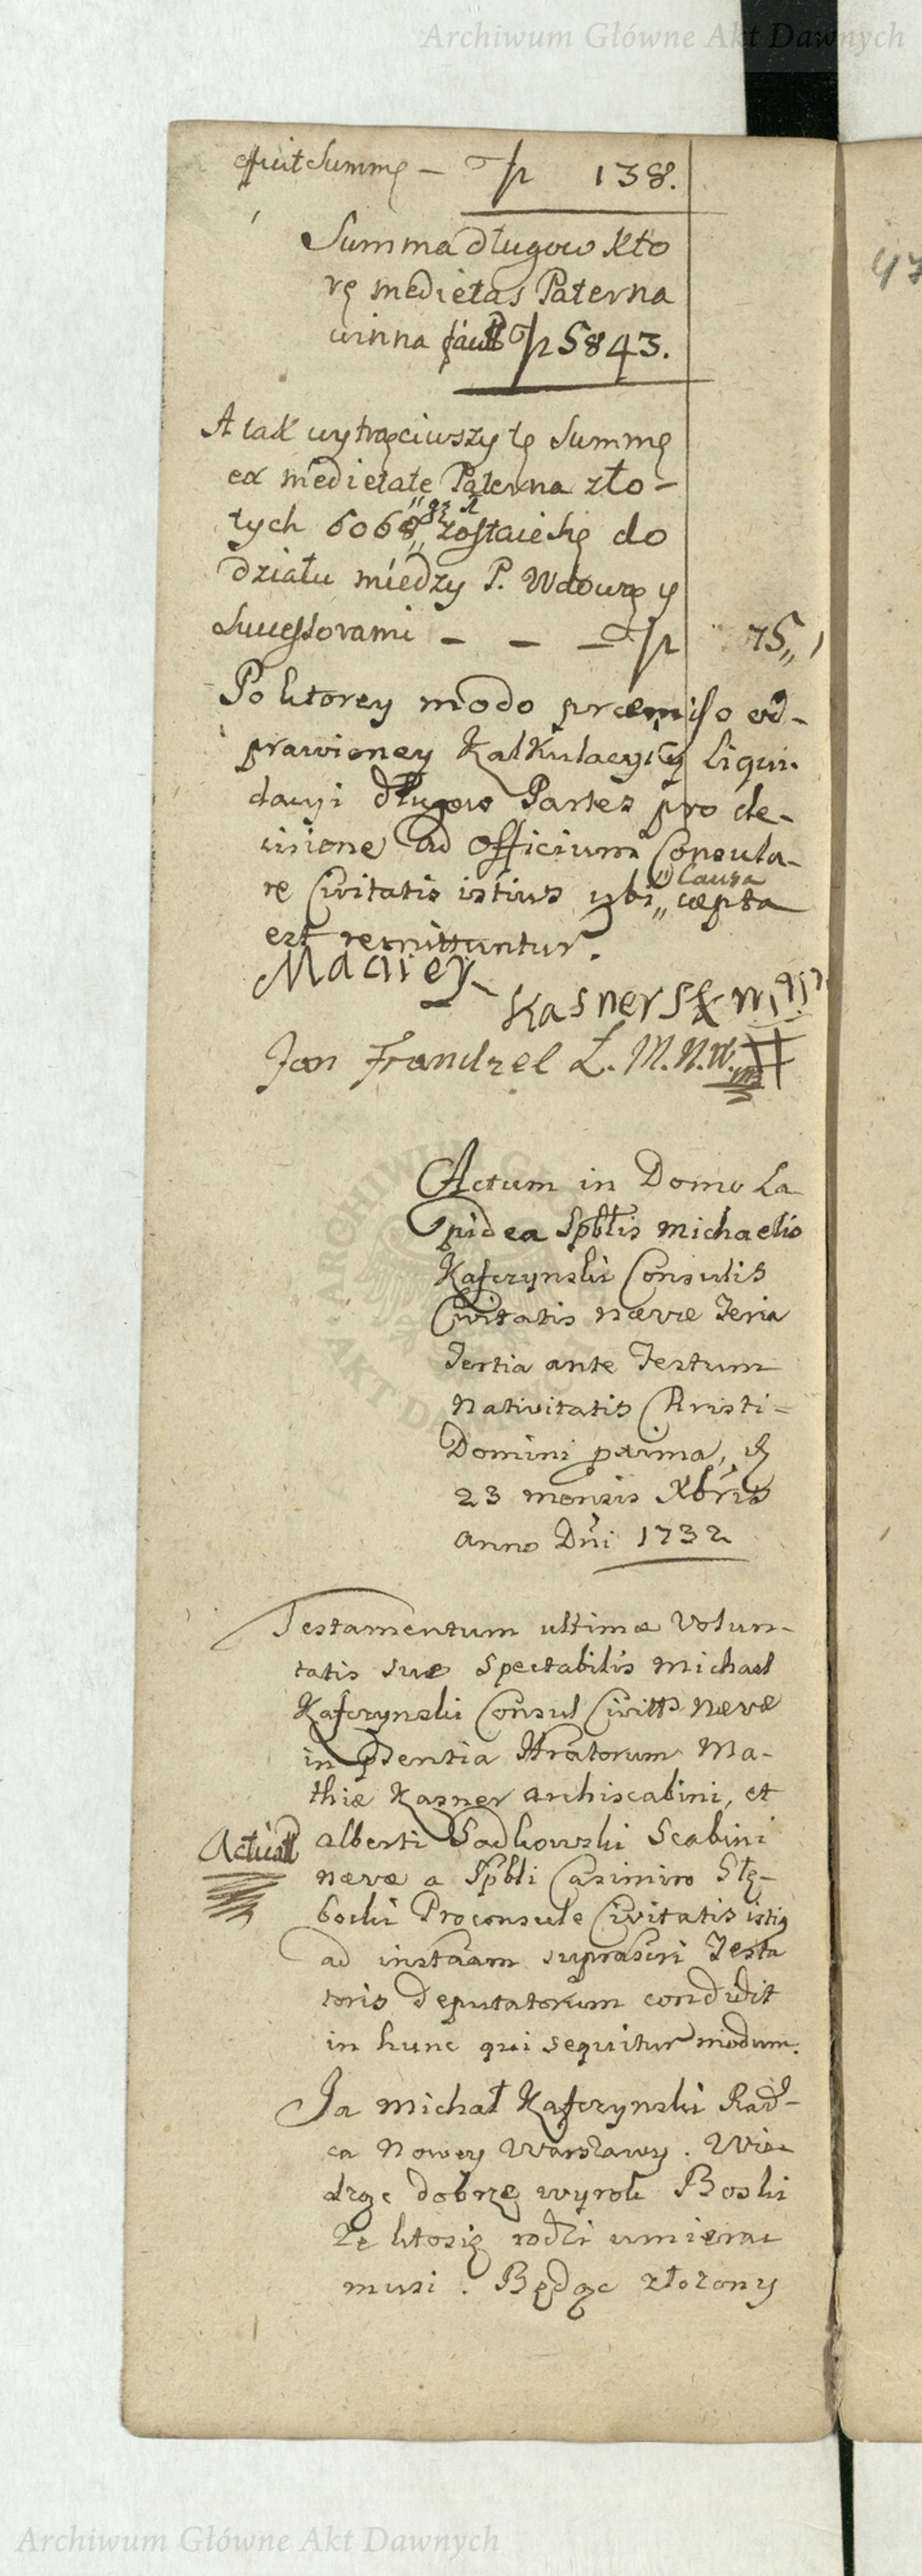 Archiwum Główne Akt Dawnych
efficit Summę – 138.
Summa długow Kto
rę medietas Paterna
winna 5843.
A tak wytrąciwszy tę Summę
ex medietate Paterna zło-
tych 6068 zostaie się do
działu między P. Wdową y
Successorami – – – 75,,
Po ktorey modo præmisso od-
prawioney Kalkulacyi y liqui-
dacyi długow Partes pro de-
cisione ad Officium Consula-
re Civitatis istius ubi Causa cæpta
est remittuntur.
Maciey
Kasner
Jan Frandzel Ł. M. N. W.
Actum in Domo La
pidea Spblis Michaelis
Kafczynski Consulis
Civitatis Novæ Feria
Tertia ante Festum
Nativitatis Christi
Domini proxima,
23 mensis Xbris
Anno Dni 1732
Testamentum ultimæ Volun-
tatis suæ Spectabilis Michael
Kafczynski Consul Civitts Novæ
in pntia Hratorum Ma-
thiæ Kasner Archiscabini, et
Alberti Sadkowski Scabini
Novæ a Spbli Casimiro Stę-
bocki Proconsule Civitatis istig
ad instaam suprascri Testa
toris deputatorum condidit
in hunc qui sequitur modum.
Ja Michał Kafczynski Rad-
ca Nowey Warszawy. Wie-
dząc dobrze wyrok Boski
Że ktosię rodzi umierac
musi. Będąc złożony
Archiwum Główne Akt Dawnych